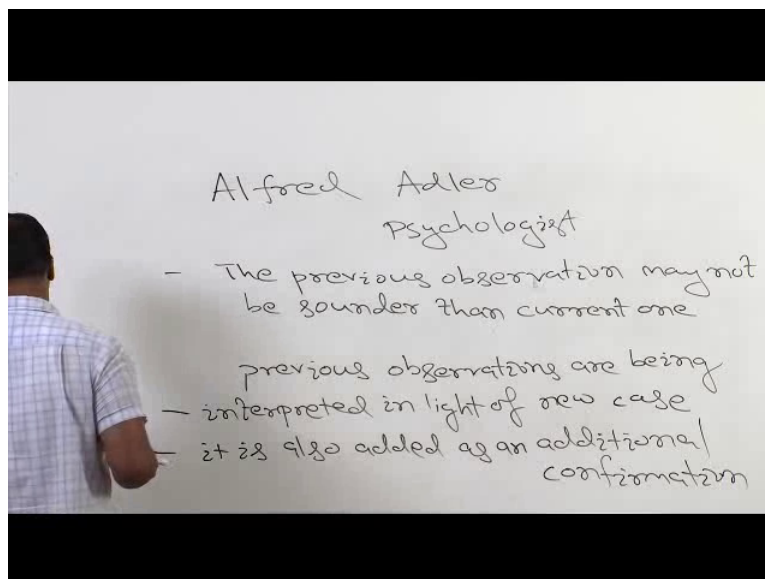 Alfred Adler
Psychologist
- The previous observation may not
be sounder than current one
previous observations are being
- interpreted in light of new case
- it is also added as an additional
confirmation